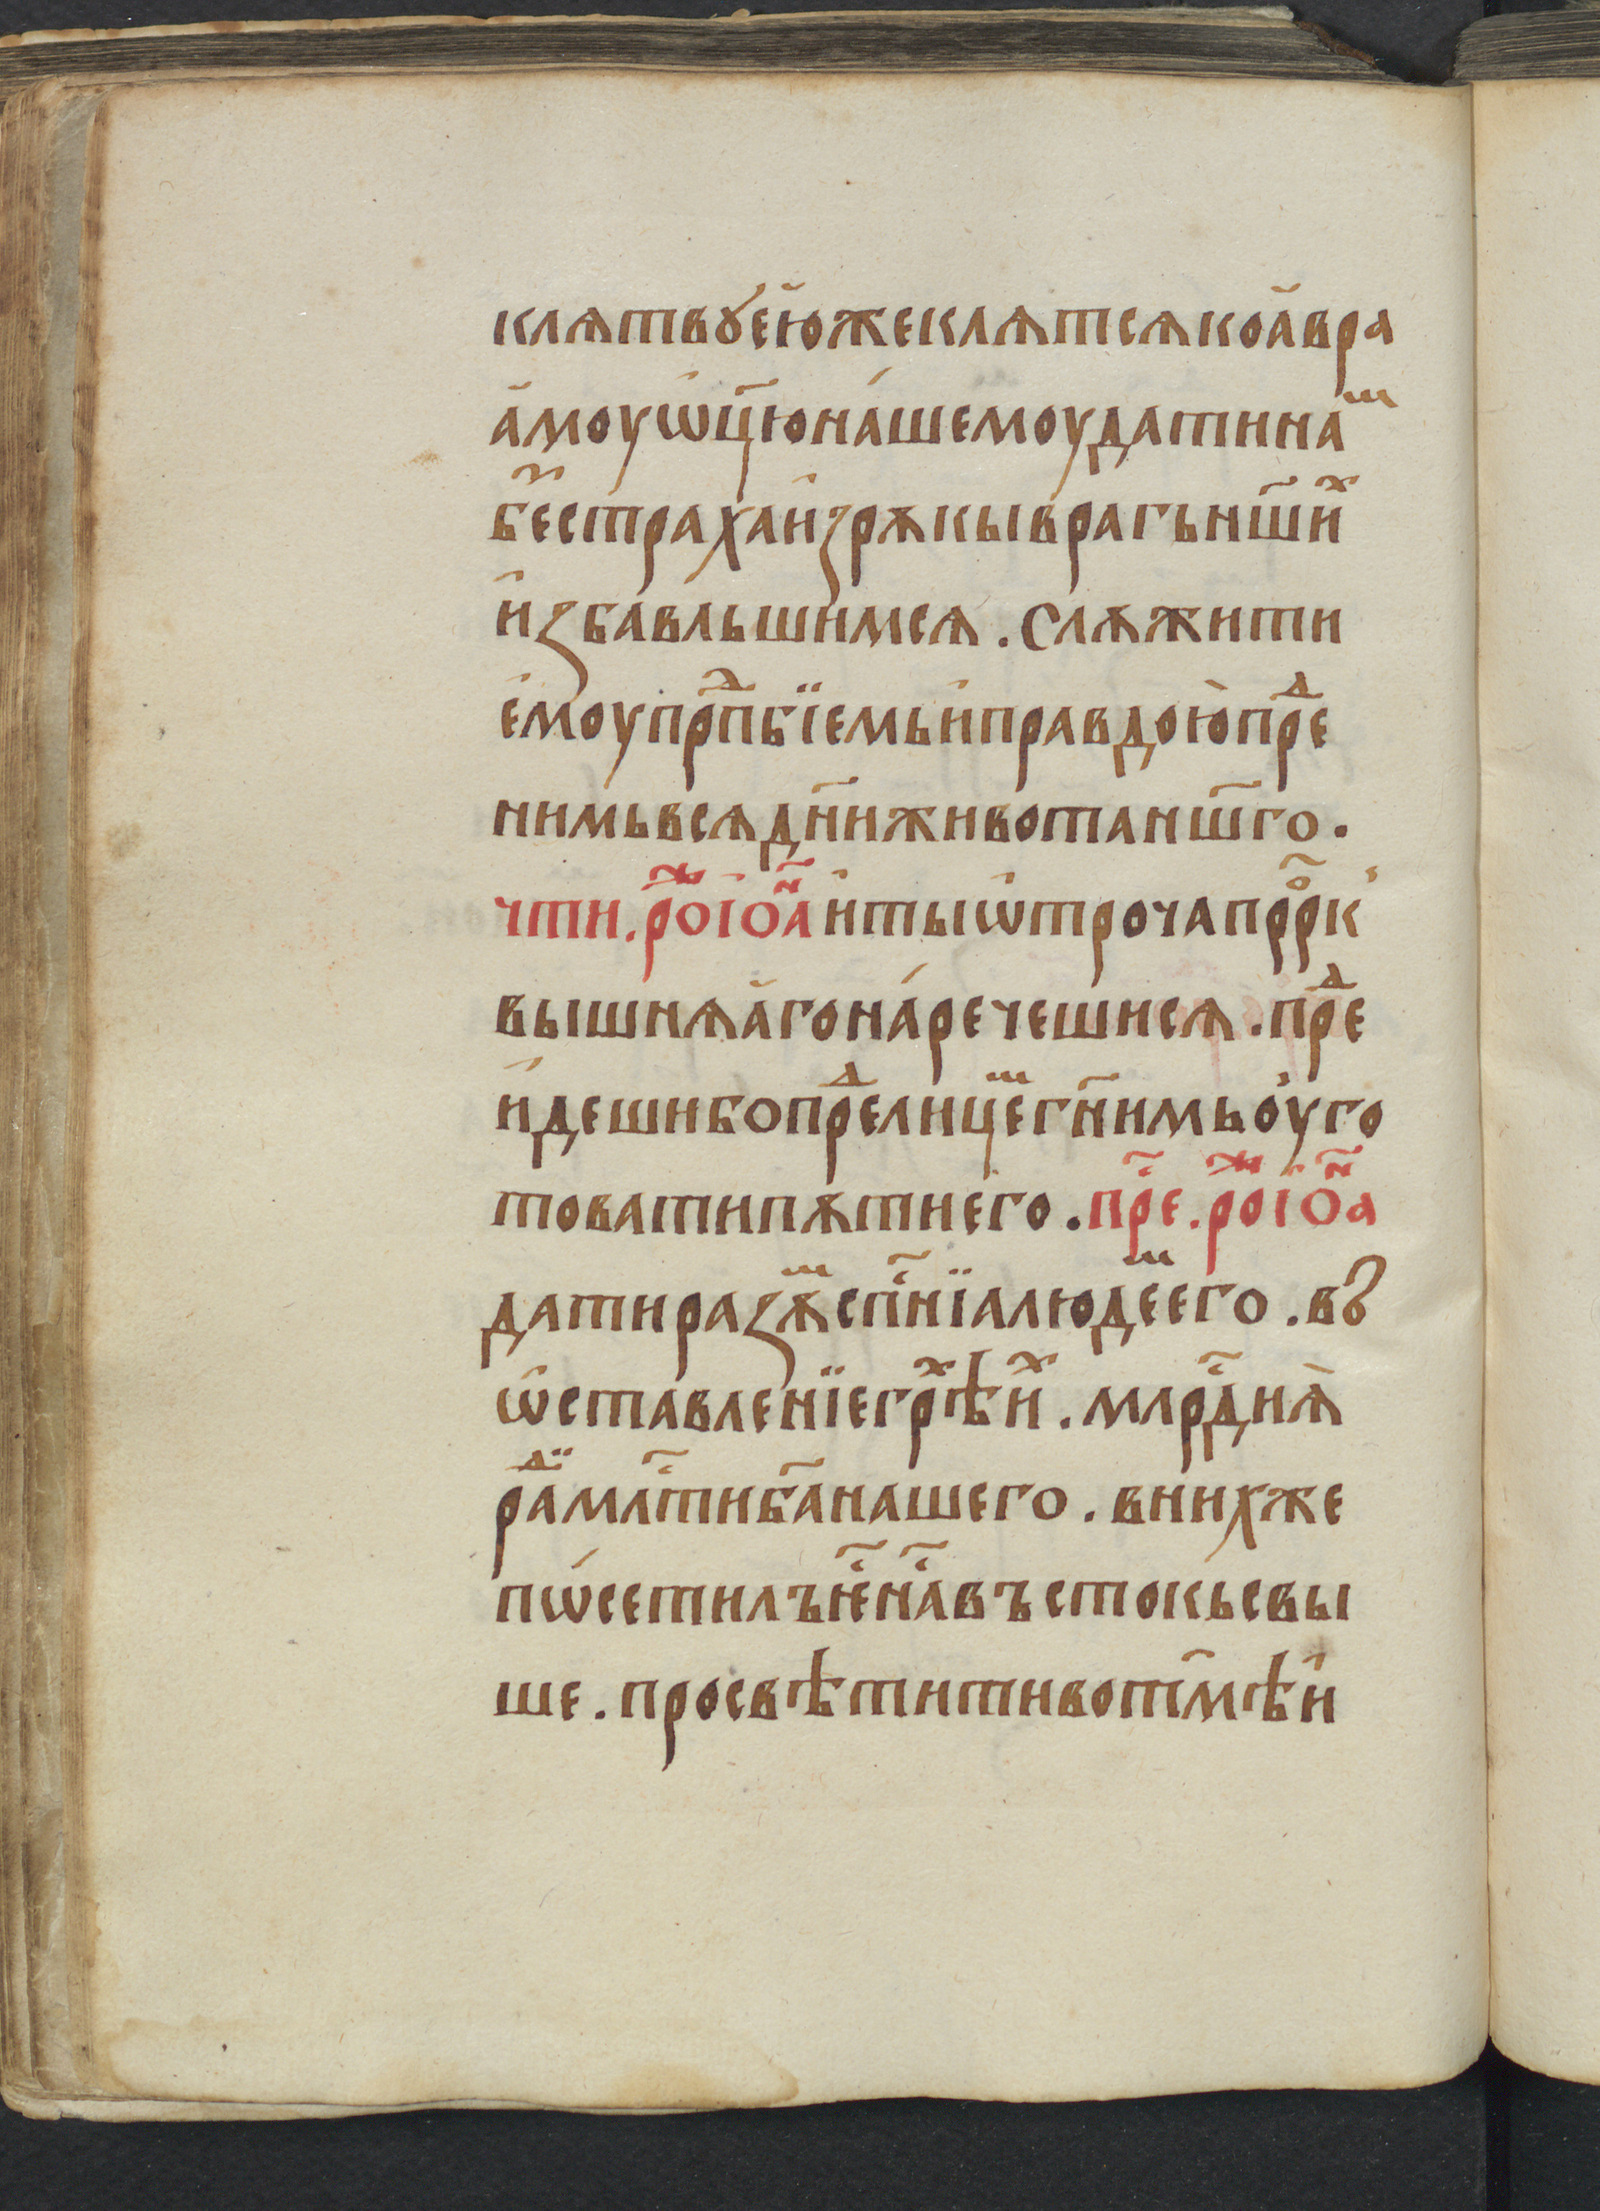 клѧтвꙋеюжеклѧтсѧкоавра
амоуѡц҃юнашемоудатинаⷨ
беⷥстрахаизрѫкывраг҄ьнш҃иⷯ
избавльшимсѧ. слѫжити
емоупрⷣпбїемьиправдоюпреⷣ
нимьвсѧдн҃иживотанш҃го.
чти. роⷤіоаⷩ҇итыѡтрочапрⷪ҇рк
вышнѧагонаречешисѧ. преⷣ
идешибопреⷣлицеⷨгн҃имьоуго
товатипѫтиего. пр҇е. роⷤіоⷩ҇а
датиразѫⷨсп҃нїалюдеⷨего. вꙋ
ѡставленїегрѣⷯиⷯ. млрⷭ҇днѧ
раⷣмлⷭ҇тиб҃анашего. внихже
пѡсетилънⷭ҇енⷭ҇авъстокьсвы
ше. просвѣтитивотм҃ѣи